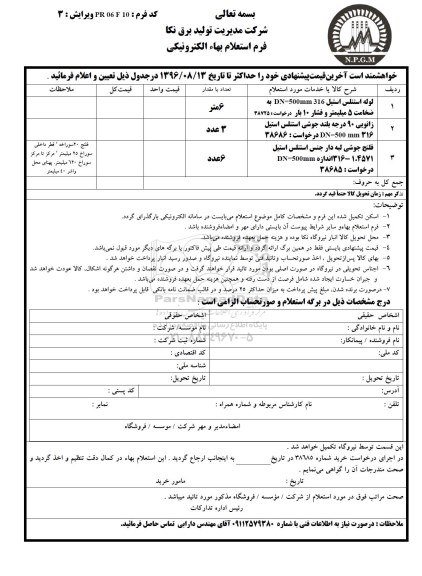 بسمه تعالی
کد فرم : PR 06 F 10 ویرایش : 3
شرکت مدیریت تولید برق نکا
فرم استعلام بهاء الکترونیکی
N.P.G.M
خواهشمند است آخرین قیمت پیشنهادی خود را حداکثر تا تاریخ 1396/08/13 در جدول ذیل تعیین و اعلام فرمائید .
ردیف شرح کالا یا خدمات مورد استعلام تعداد یا مقدار قیمت واحد قیمت کل ملاحظات
1 لوله استنلس استیل 316 DN=500mm به ضخامت 5 میلیمتر و فشار 10 بار درخواست : 38725 6متر
2 زانویی 90 درجه بلند جوشی استنلس استیل 316 DN=500 mm درخواست : 38686 3 عدد
3 فلنج جوشی لبه دار جنس استنلس استیل 1.4571 -316 اندازه DN=500mm درخواست : 38685 6عدد
جمع کل به حروف:
تذکر مهم : زمان تحویل کالا حتما قید گردد.
توضیحات:
1- اسکن تکمیل شده این فرم و مشخصات کامل موضوع استعلام می‌بایست در سامانه الکترونیکی بارگذاری گردد.
2- فرم استعلام بهاء و سایر شرایط پیوست آن بایستی دارای مهر و امضاء فروشنده باشد .
3- محل تحویل کالا انبار نیروگاه نکا بوده و هزینه حمل بعهده فروشنده می‌باشد.
4- قیمت پیشنهادی بایستی فقط در همین برگ ارائه گردد و ارائه قیمت طی پیش فاکتور یا برگه های دیگر مورد قبول نمی‌باشد.
5- بهای کالا پس از تحویل ، اخذ صورتحساب و تائید فنی توسط نماینده نیروگاه و صدور رسید انبار پرداخت خواهد شد .
6- اجناس تحویلی در نیروگاه در صورت اصلی بودن مورد تائید قرار خواهند گرفت و در صورت نقصان و داشتن هرگونه اشکال، کالا عودت خواهد شد و جبران خسارت ایجاد شده شامل فرصت از دست رفته و همچنین هزینه حمل بعهده فروشنده می‌باشد .
7- درصورت برنده شدن، مبلغ پیش پرداخت به میزان حداکثر 25 درصد و در قالب ضمانت نامه بانکی قابل پرداخت خواهد بود .
درج مشخصات ذیل در برگه استعلام و صورتحساب الزامی است :
اشخاص حقیقی اشخاص حقوقی
نام و نام خانوادگی : نام موسسه/ شرکت :
فروشنده / پیمانکار: شماره ثبت شرکت :
کد ملی: کد اقتصادی :
شناسه ملی:
تاریخ تحویل : تاریخ تحویل:
آدرس: کد پستی :
تلفن : نام کارشناس مربوطه و شماره همراه : نمابر :
امضاء مدیر و مهر شرکت / موسسه / فروشگاه
این قسمت توسط نیروگاه تکمیل خواهد شد .
در اجرای درخواست خرید شماره 38685 در تاریخ به اینجانب ارجاع گردید . این استعلام بهاء در کمال دقت تنظیم و اخذ گردید و صحت مندرجات آن را گواهی می‌نمایم .
تاریخ : مامور خرید
صحت مراتب فوق در مورد استعلام از شرکت / مؤسسه / فروشگاه مذکور مورد تائید میباشد .
رئیس اداره تدارکات
ملاحظات : درصورت نیاز به اطلاعات فنی با شماره 09112579380 آقای مهندس دارابی تماس حاصل فرمائید.